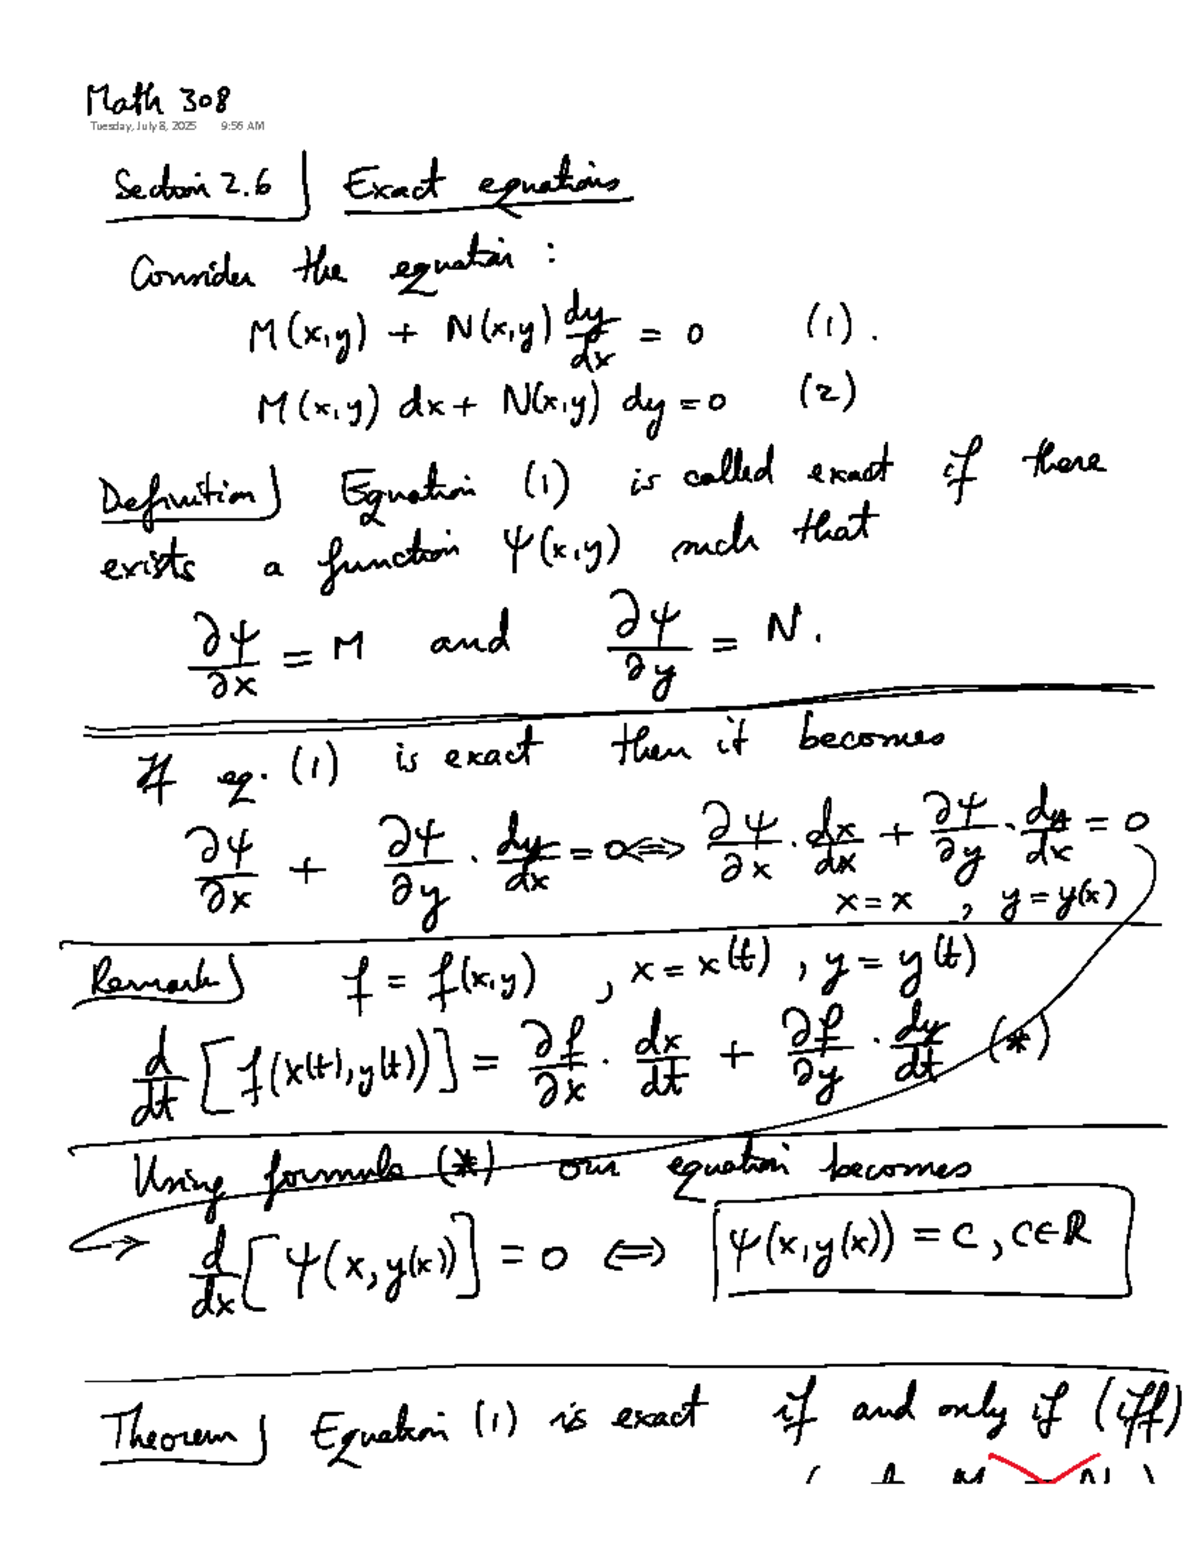 Math 308
Tuesday, July 8, 2025 9:56 AM
Section 2.6 Exact equations
Consider the equation :
M(x,y) + N(x,y) dy/dx = 0 (1).
M(x,y) dx + N(x,y) dy = 0 (2)
Definition Equation (1) is called exact if there
exists a function ψ(x,y) such that
∂ψ/∂x = M and ∂ψ/∂y = N.
If eq. (1) is exact then it becomes
∂ψ/∂x + ∂ψ/∂y · dy/dx = 0 ⟺ ∂ψ/∂x · dx/dx + ∂ψ/∂y · dy/dx = 0
x = x , y = y(x)
Remark f = f(x,y) , x = x(t) , y = y(t)
d/dt [f(x(t), y(t))] = ∂f/∂x · dx/dt + ∂f/∂y · dy/dt (*)
Using formula (*) our equation becomes
→ d/dx [ψ(x, y(x))] = 0 ⟺ ψ(x, y(x)) = C , C ∈ ℝ
Theorem Equation (1) is exact if and only if (iff)